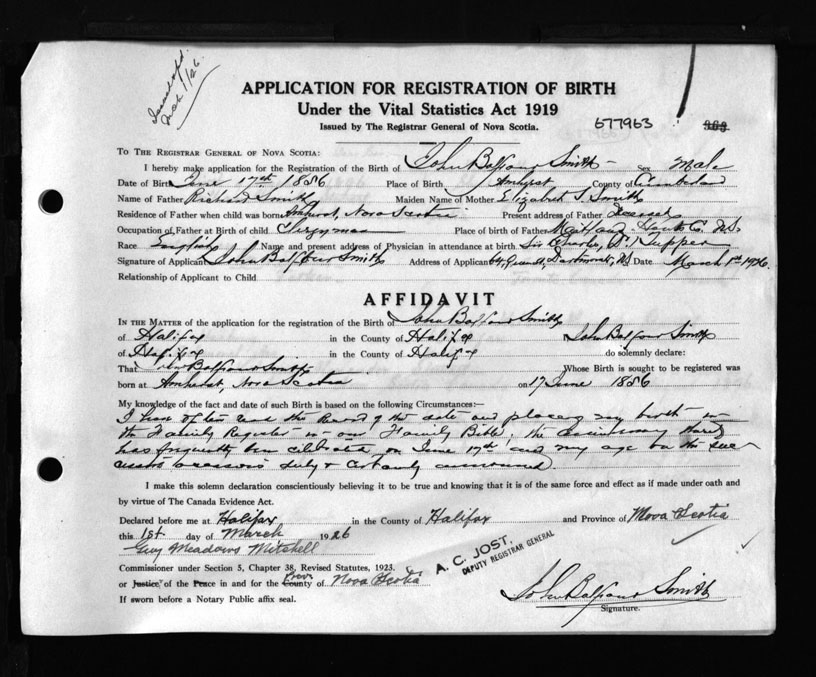 APPLICATION FOR REGISTRATION OF BIRTH
Under the Vital Statistics Act 1919
Issued by The Registrar General of Nova Scotia.
677963
TO THE REGISTRAR GENERAL OF NOVA SCOTIA:
I hereby make application for the Registration of the Birth of John Balfour Smith sex Male
Date of Birth June 17th 1856 Place of Birth Amherst County of Cumberland
Name of Father Richard Smith Maiden Name of Mother Elizabeth S. Smith
Residence of Father when child was born Amherst, Nova Scotia Present address of Father Deceased
Occupation of Father at Birth of child Clergyman Place of birth of Father Maitland Hants Co. N.S.
Race English Name and present address of Physician in attendance at birth Sir Charles Tupper
Signature of Applicant John Balfour Smith Address of Applicant Dartmouth, NS Date March 1st 1926.
Relationship of Applicant to Child
AFFIDAVIT
IN THE MATTER of the application for the registration of the Birth of John Balfour Smith
of Halifax in the County of Halifax John Balfour Smith
of Halifax in the County of Halifax do solemnly declare:
That John Balfour Smith Whose Birth is sought to be registered was
born at Amherst, Nova Scotia on 17 June 1856
My knowledge of the fact and date of such Birth is based on the following Circumstances:—
I have often read the Record of the date and place of my birth in
the Family Register in our Family Bible, the anniversary thereof
has frequently been celebrated on June 17th and my age on the
duly & certainly announced.
I make this solemn declaration conscientiously believing it to be true and knowing that it is of the same force and effect as if made under oath and
by virtue of The Canada Evidence Act.
Declared before me at Halifax in the County of Halifax and Province of Nova Scotia
this 1st day of March 1926
Guy Meadows Mitchell
A. C. JOST,
DEPUTY REGISTRAR GENERAL
Commissioner under Section 5, Chapter 38, Revised Statutes, 1923.
or Justice of the Peace in and for the County of Prov Nova Scotia
If sworn before a Notary Public affix seal.
John Balfour Smith
Signature.